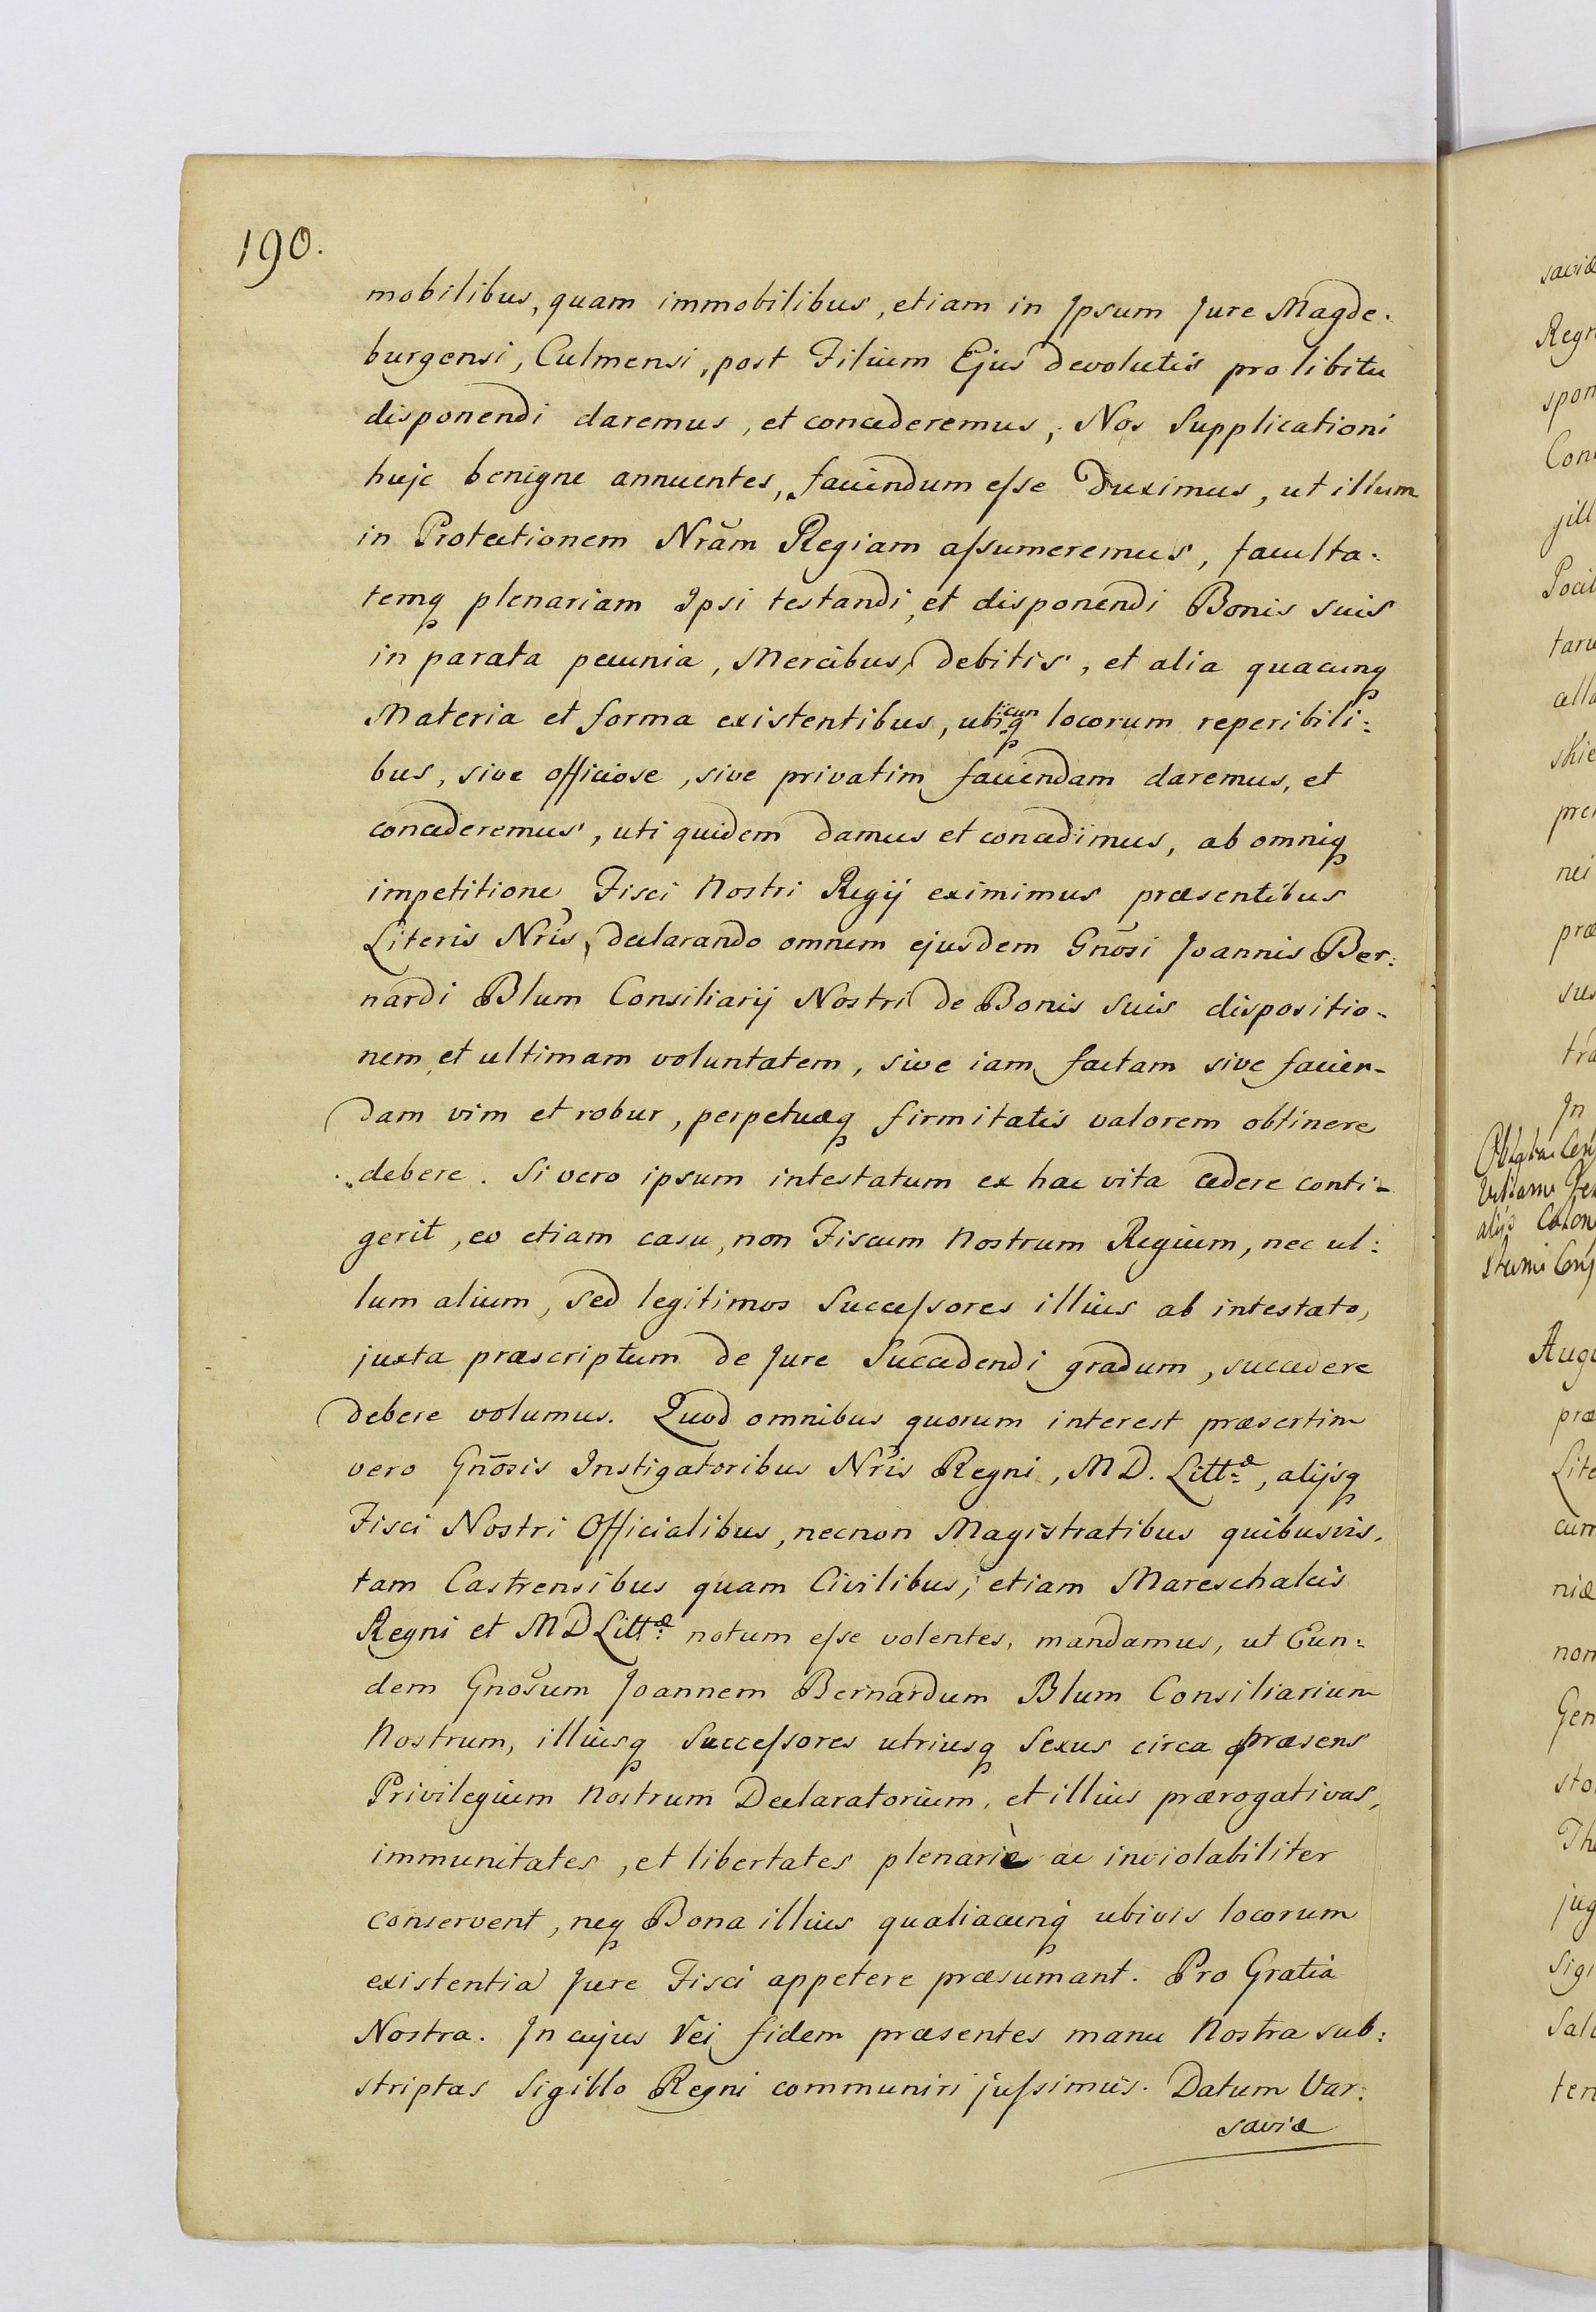 190.
mobilibus, quam immobilibus, etiam in Ipsum Jure Magde-
burgensi, Culmensi, post Filium Ejus devolutis pro libitu
disponendi daremus, et concederemus, Nos Supplicationi
huic benigne annuentes, faciendum eſse duximus, ut illum
in Protectionem Nrãm Regiam aſsumeremus, faculta-
temq plenariam Ipsi testandi, et disponendi Bonis suis
in parata pecunia, Mercibus, debitis, et alia quacunq
Materia et forma existentibus, ubilicunq locorum reperibili:
bus, sive officiose, sive privatim faciendam daremus, et
concederemus, uti quidem damus et concedimus, ab omniq
impetitione Fisci Nostri Regij eximimus præsentibus
Literis Nris, declarando omnem ejusdem Gnosi Joannis Ber:
nardi Blum Consiliarij Nostri de Bonis suis dispositio-
nem et ultimam voluntatem, sive iam factam sive facien-
dam vim et robur, perpetuæq firmitatis valorem obtinere
debere. Si vero ipsum intestatum ex hac vita cedere conti-
gerit, eo etiam casu, non Fiscum Nostrum Regium, nec ul:
lum alium, sed legitimos Succeſsores illius ab intestato,
juxta præscriptum de Jure Succedendi gradum, succedere
debere volumus. Quod omnibus quorum interest præsertim
vero Gnosis Instigatoribus Nris Regni, M D. Littæ, alijsq
Fisci Nostri Officialibus, necnon Magistratibus quibusvis,
tam Castrensibus quam Civilibus, etiam Mareschalcis
Regni et M D Littæ notum eſse volentes, mandamus, ut Eun:
dem Gnosum Joannem Bernardum Blum Consiliarium
Nostrum, illiusq Succeſsores utriusq Sexus circa præsens
Privilegium Nostrum Declaratorium, et illius prærogativas,
immunitates, et libertates plenariè ac inviolabiliter
conservent, neq Bona illius qualiacunq ubivis locorum
existentia Jure Fisci appetere præsumant. Pro Gratia
Nostra. In cujus Rei fidem præsentes manu Nostra sub:
striptas Sigillo Regni communiri juſsimus. Datum Var:
saviæ